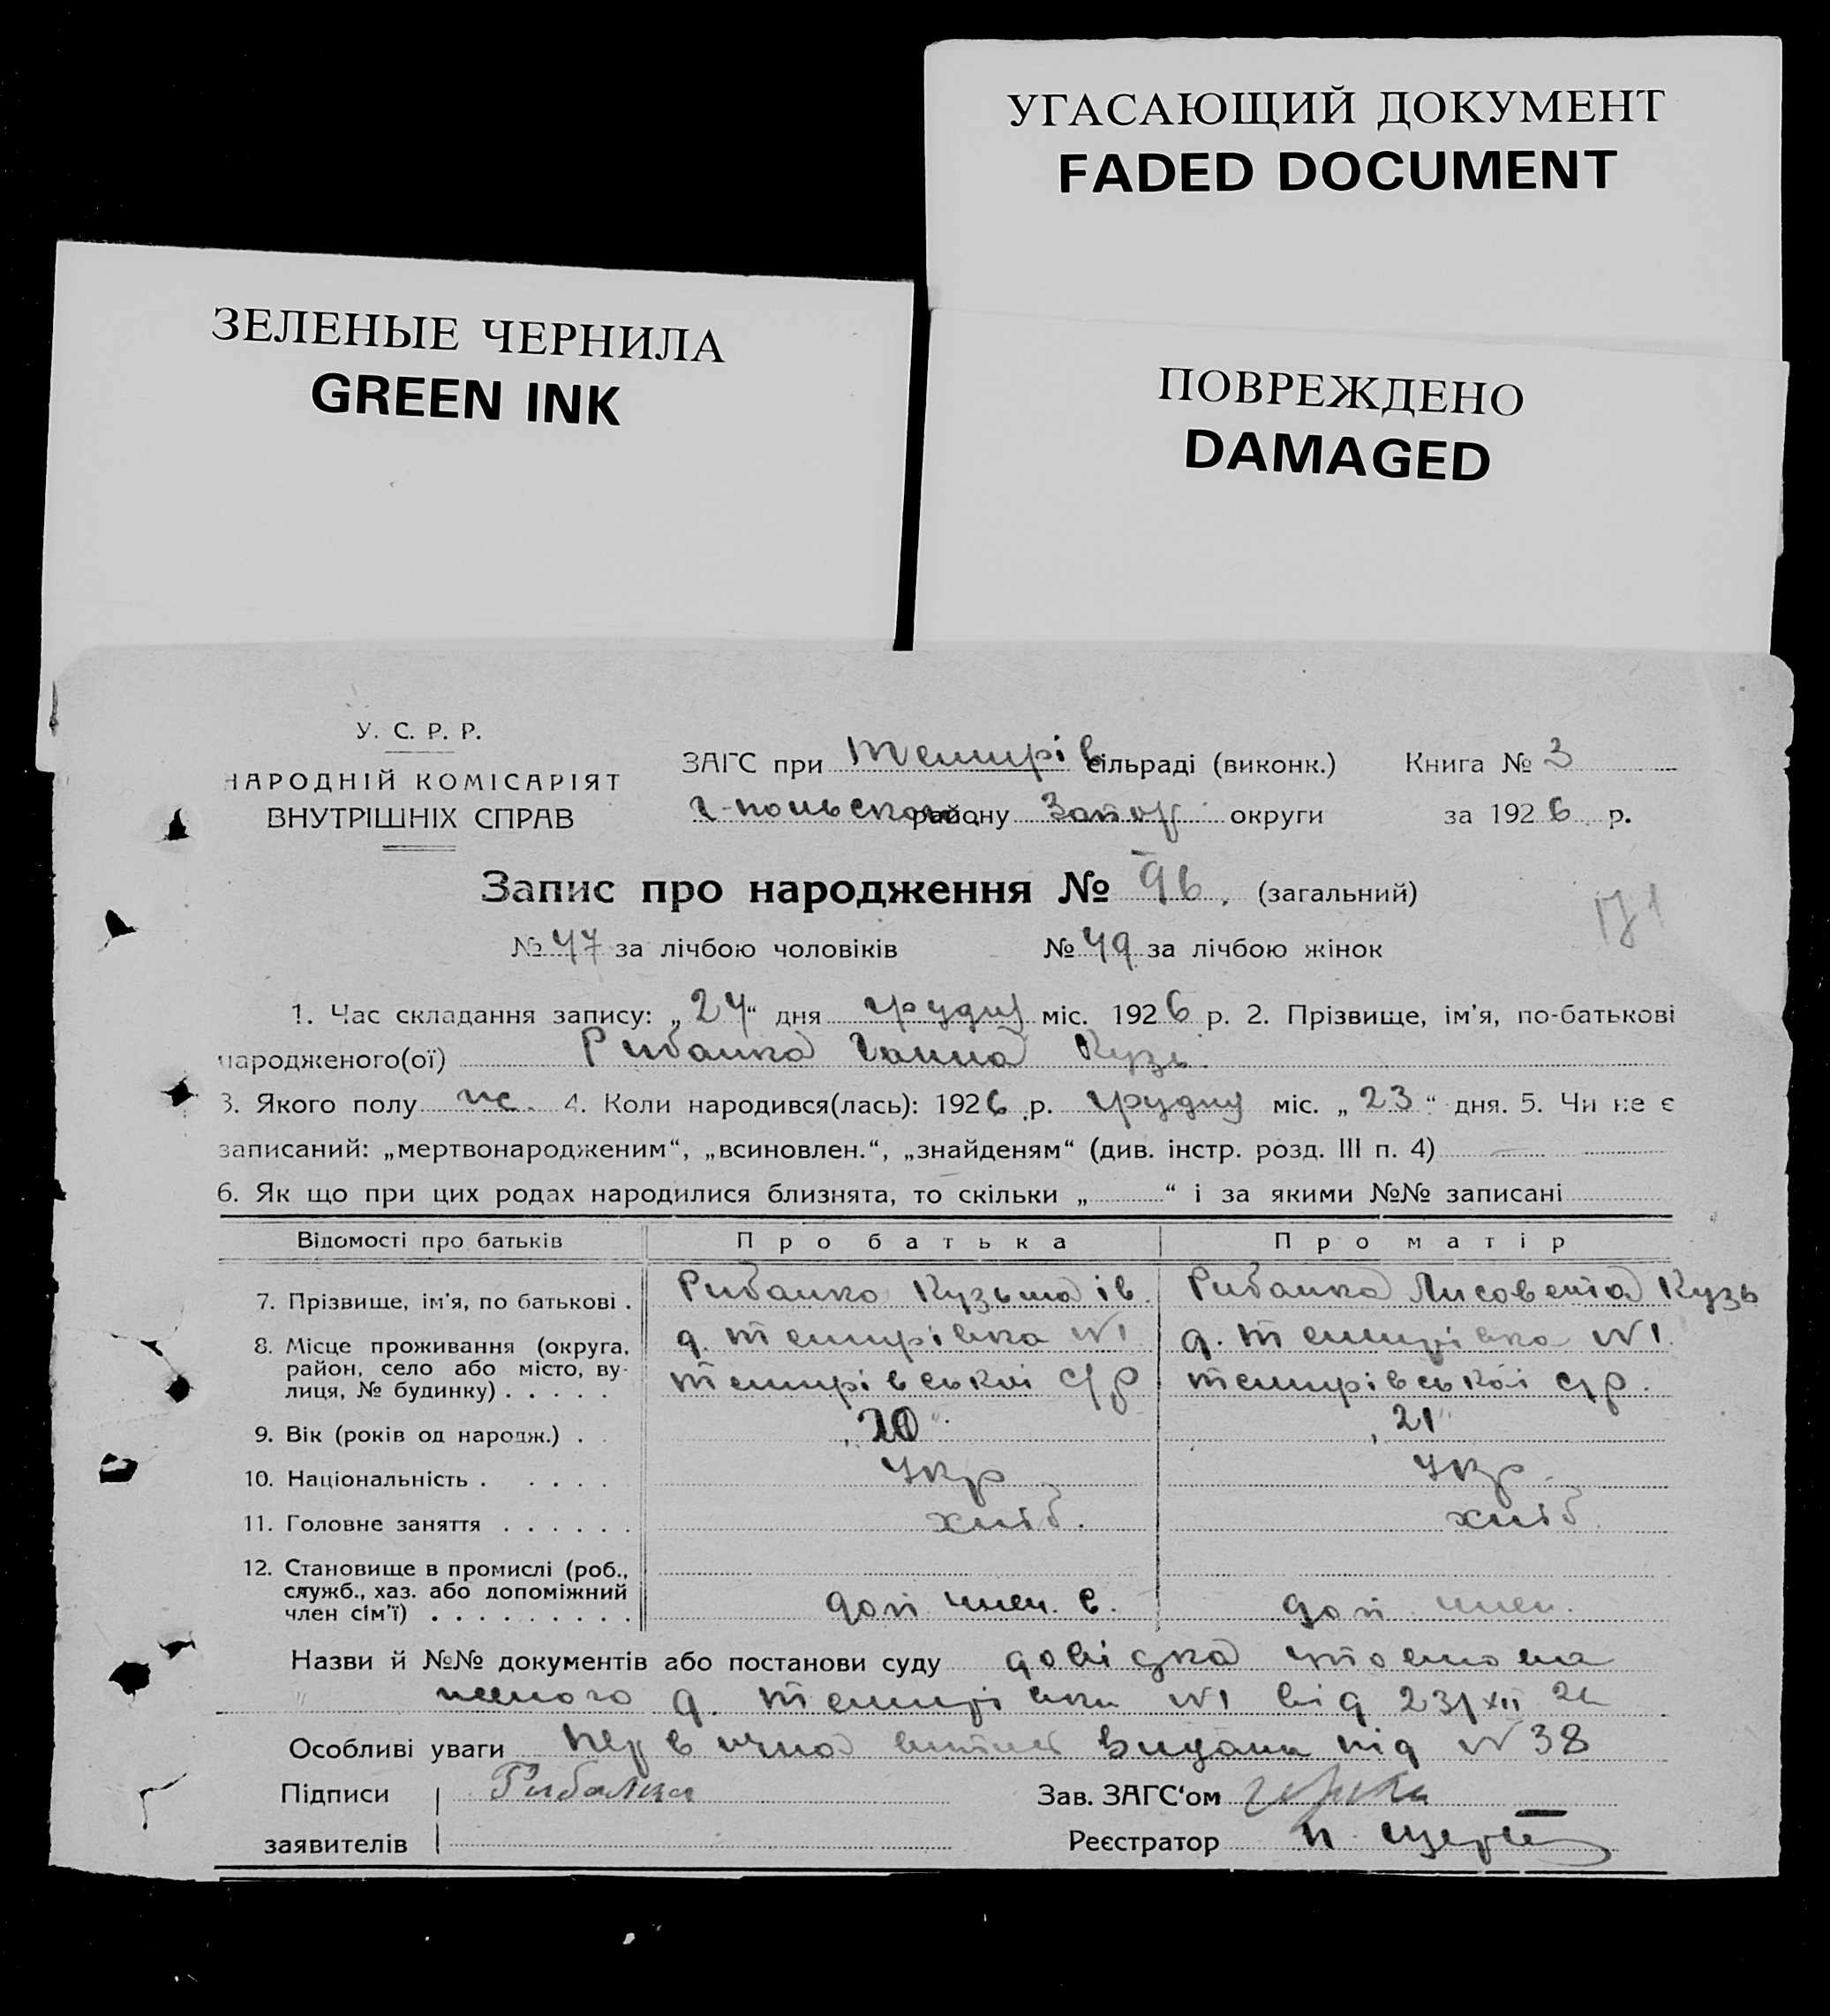 УГАСАЮЩИЙ ДОКУМЕНТ
FADED DOCUMENT
ЗЕЛЕНЫЕ ЧЕРНИЛА
GREEN INK
ПОВРЕЖДЕНО
DAMAGED
У. С. Р. Р.
НАРОДНІЙ КОМІСАРІЯТ
ВНУТРІШНІХ СПРАВ
ЗАГС при Темирів сільраді (виконк.) Книга № 3
Г-польского району Запор округи за 1926 р.
Запис про народження № 96. (загальний)
171
№ 47 за лічбою чоловіків № 49 за лічбою жінок
1. Час складання запису: „24“ дня грудня міс. 1926 р. 2. Прізвище, ім'я, по-батькові
народженого(ої) Рибалка Ганна Кузь.
3. Якого полу ж. 4. Коли народився(лась): 1926 р. грудня міс. „23“ дня. 5. Чи не є
записаний: „мертвонародженим“, „всиновлен.“, „знайденям“ (див. інстр. розд. III п. 4)
6. Як що при цих родах народилися близнята, то скільки „ “ і за якими №№ записані
Відомості про батьків Про батька Про матір
7. Прізвище, ім'я, по батькові . Рибалко Кузьма Ів. Рибалка Лисовета Кузь
8. Місце проживання (округа, район, село або місто, вулиця, № будинку) . . . . . д. Темирівка №1 Темирівської с/р д. Темирівка №1. Темирівської с/р.
9. Вік (років од народж.) . „20“ „21“
10. Національність . . . . . Укр Укр.
11. Головне заняття . . . . . . хліб. хліб.
12. Становище в промислі (роб., служб., хаз. або допоміжний член сім'ї) . . . . . . . . . доп член. с. доп член.
Назви й №№ документів або постанови суду довідка
д. Темирівки №1 від 23/XII 26
Особливі уваги Первична витяг видана під №38
Підписи Рибалка Зав. ЗАГС'ом
заявителів Реєстратор П.